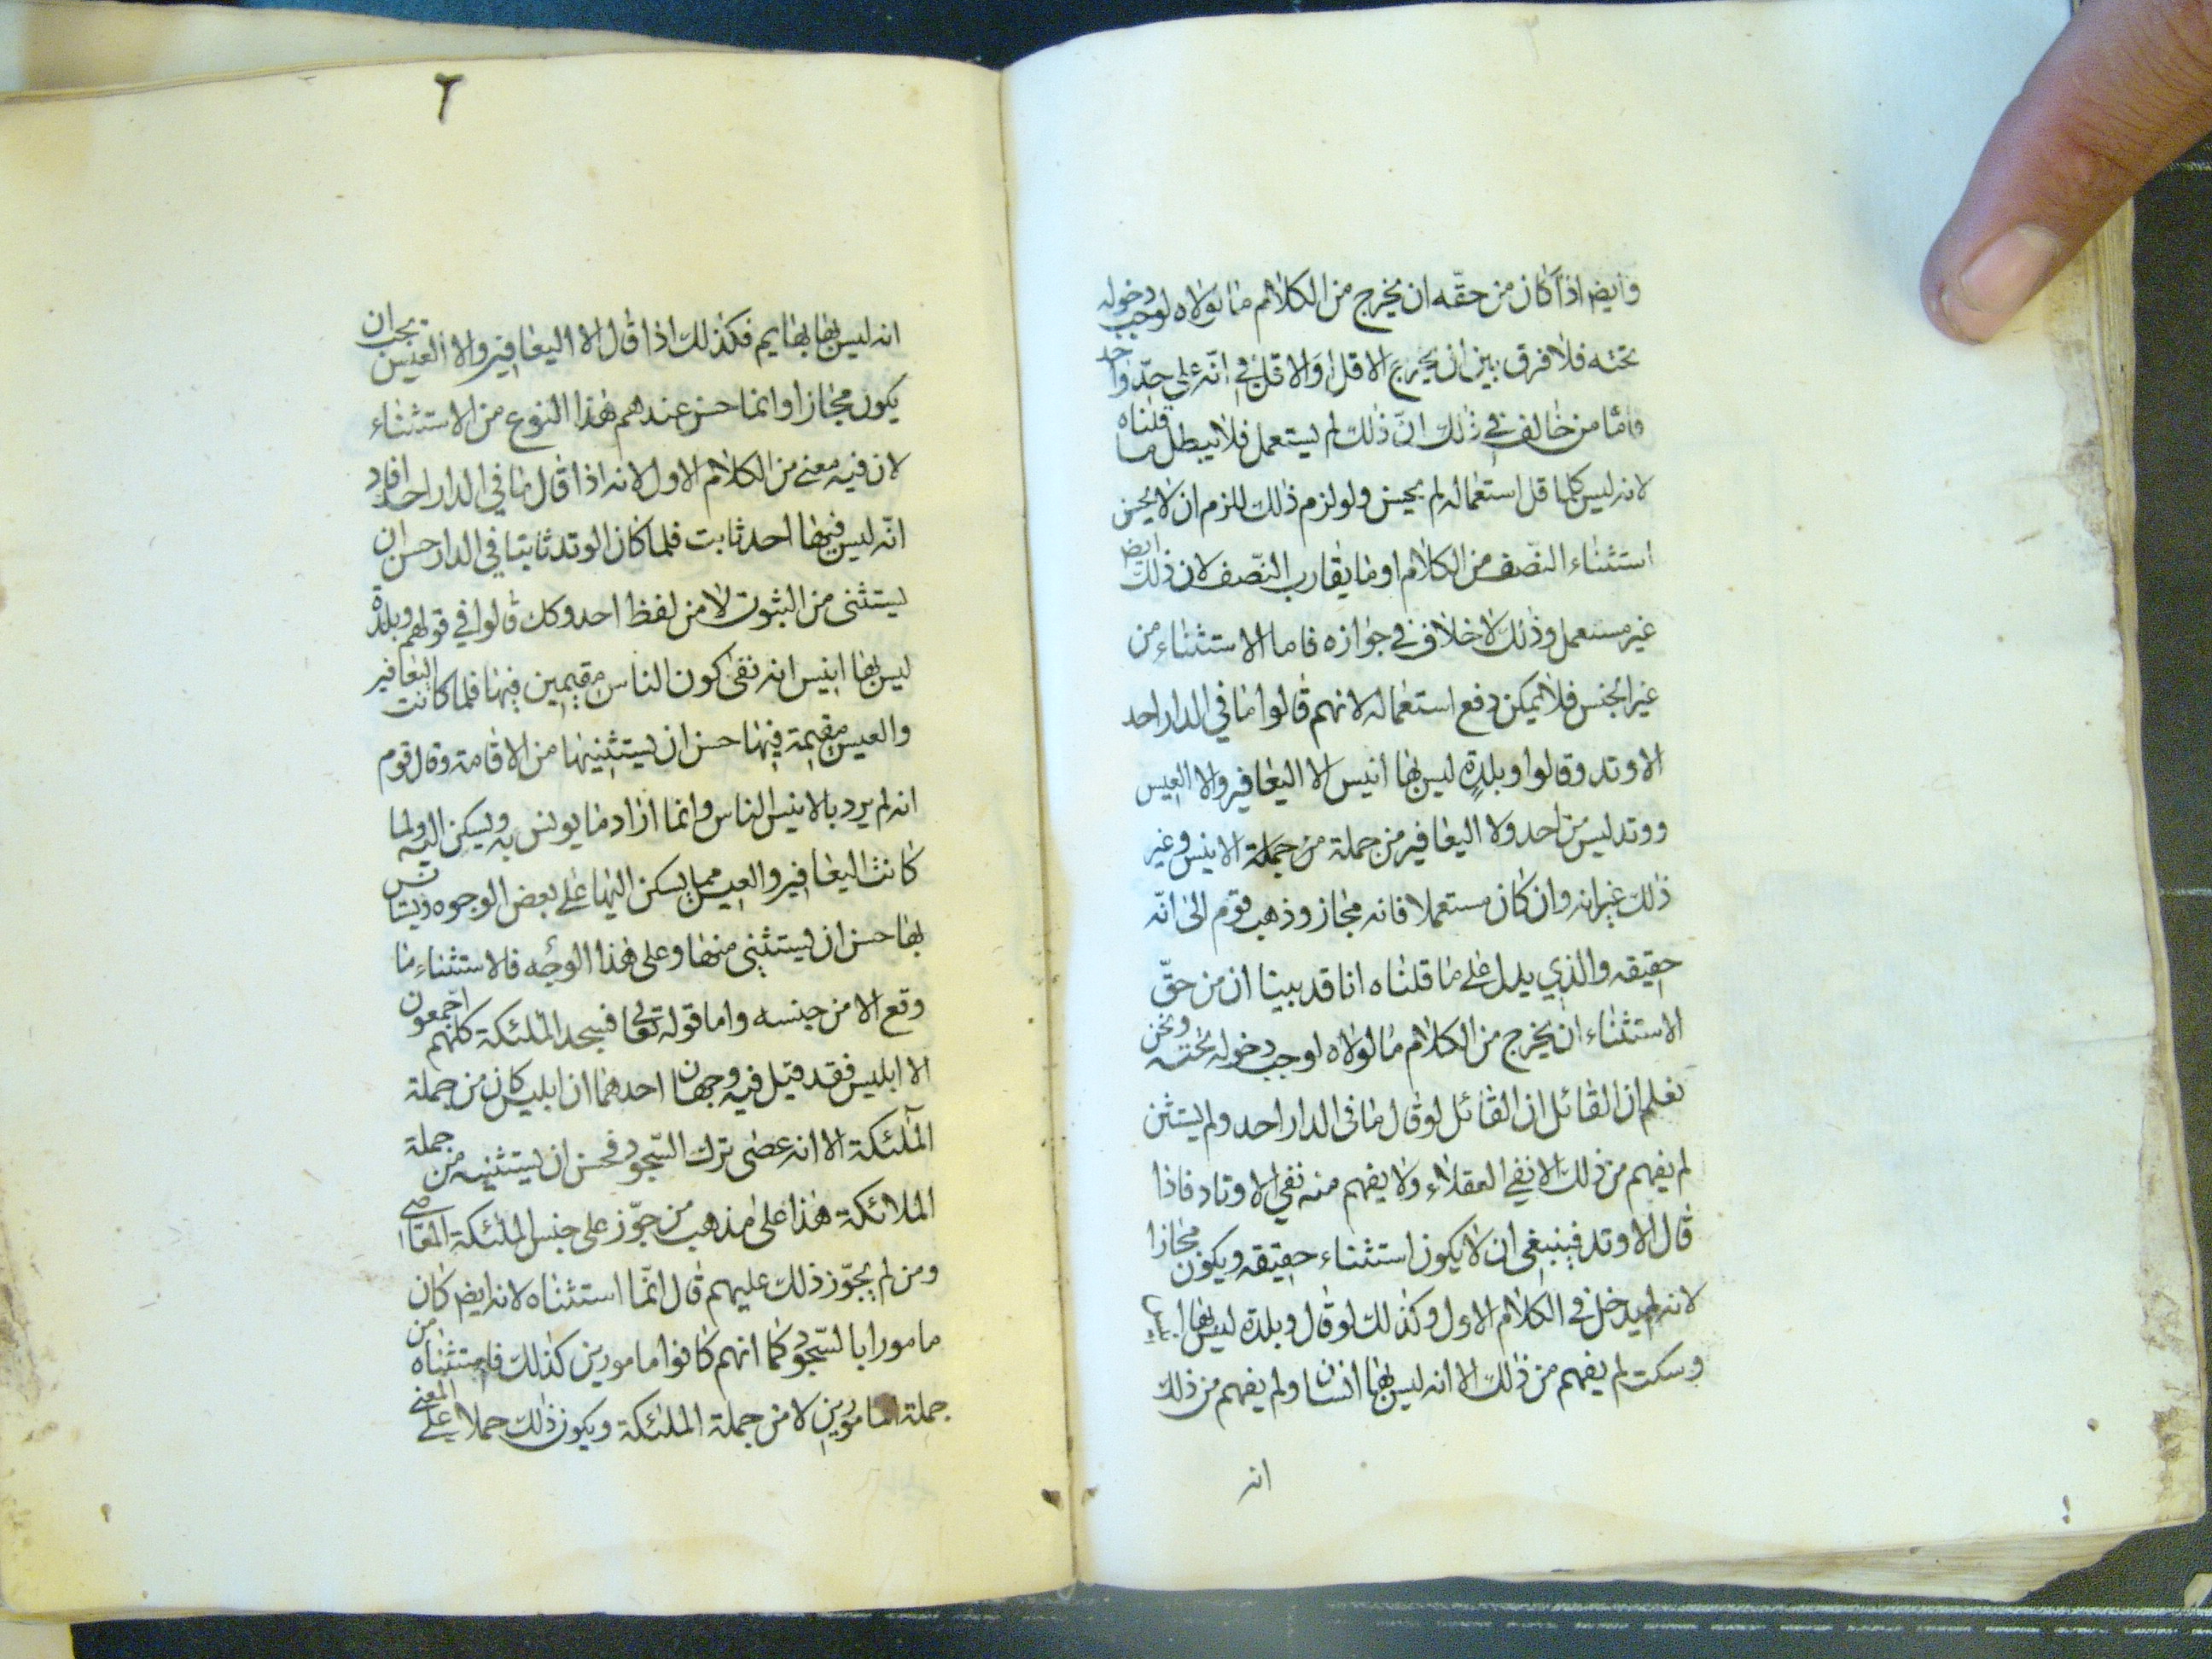 وايضا اذا كان من حقّه ان يخرج من الكلام ما لولاه لوجب دخوله
تحته فلا فرق بين ان يخرج الاقل او الاقل في انّه على حدّ واحد
فامّا من خالف في ذلك انّ ذلك لم يستعمل فلا يبطل ما قلناه
لانه ليس كلما قل استعماله لم يحسن ولو لزم ذلك للزم ان لا يحسن
استثناء النصّف من الكلام او ما يقارب النصّف لان ذلك ايض
غير مستعمل وذلك لا خلاف في جوازه فاما الاستثناء من
غير الجنس فلا يمكن دفع استعماله لانهم قالوا ما في الدار احد
الا وتد وقالوا وبلدةٍ ليس بها انيس الا اليعافير والا العيس
ووتد ليس من احد ولا اليعافير من جملة من جملة الانيس وغير
ذلك غير انه وان كان مستعملا فانه مجاز وذهب قوم الى انّه
حقيقه والذي يدل على ما قلناه انا قد بينا ان من حقّ
الاستثناء ان يخرج من الكلام ما لولاه لوجب دخوله تحته ونحن
نعلم ان القائل ان القائل لو قال ما في الدار احد ولم يستثن
لم يفهم من ذلك الا نفي العقلاء ولا يفهم منه نفي الاوتاد فاذا
قال الا وتد فينبغي ان لا يكون استثناء حقيقه ويكون مجازا
لانه لم يدخل في الكلام الاول وكذلك لو قال وبلدة ليس بها
وسكت لم يفهم من ذلك الا انه ليس بها انسان ولم يفهم من ذلك
انه
٢
انه ليس بها بهايم فكذلك اذا قال الا اليعافير والا العيس يجب ان
يكون مجازا وانما حسن عندهم هذا النوع من الاستثناء
لان فيه معنى من الكلام الاول لانه اذا قال ما في الدار احد افاد
انّه ليس فيها احد ثابت فلما كان الوتد ثابتا في الدار حسن ان
يستثنى من الثبوت لا من لفظ احد وكك قالوا في قولهم وبلدة
ليس بها انيس انه نفى كون الناس مقيمين فيها فلما كانت اليعافير
والعيس مقيمة فيها حسن ان يستثنيها من الاقامة وقال قوم
انه لم يرد بالانيس الناس وانما اراد ما يونس به ويسكن اليه ولما
كانت اليعافير والعيس مما يسكن اليها على بعض الوجوه ويستانس
بها حسن ان يستثني منها وعلى هذا الوجه فالاستثناء ما
وقع الا من جنسه واما قوله تعالى فسجد الملئكة كلهم اجمعون
الا ابليس فقد قيل فيه وجهان احدهما ان ابليس كان من جملة
الملئكة الا انه عصى بترك السّجود فحسن ان يستثنيه من جملة
الملائكة هذا على مذهب من جوّز على جنس الملئكة المعاصي
ومن لم يجوّز ذلك عليهم قال انّما استثناه لانه ايض كان
مامورا بالسّجود كما انهم كانوا مامورين كذلك فاستثناه من
جملة المامورين لا من جملة الملئكة ويكون ذلك حملا على المعنى